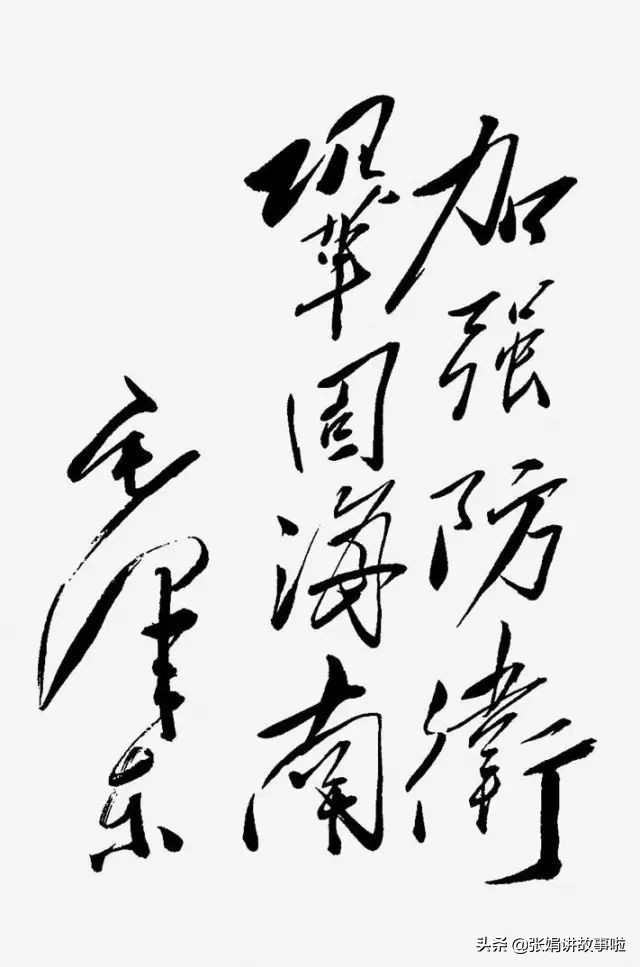 加强防衛
鞏固海南
毛泽东
头条 @张娟讲故事啦